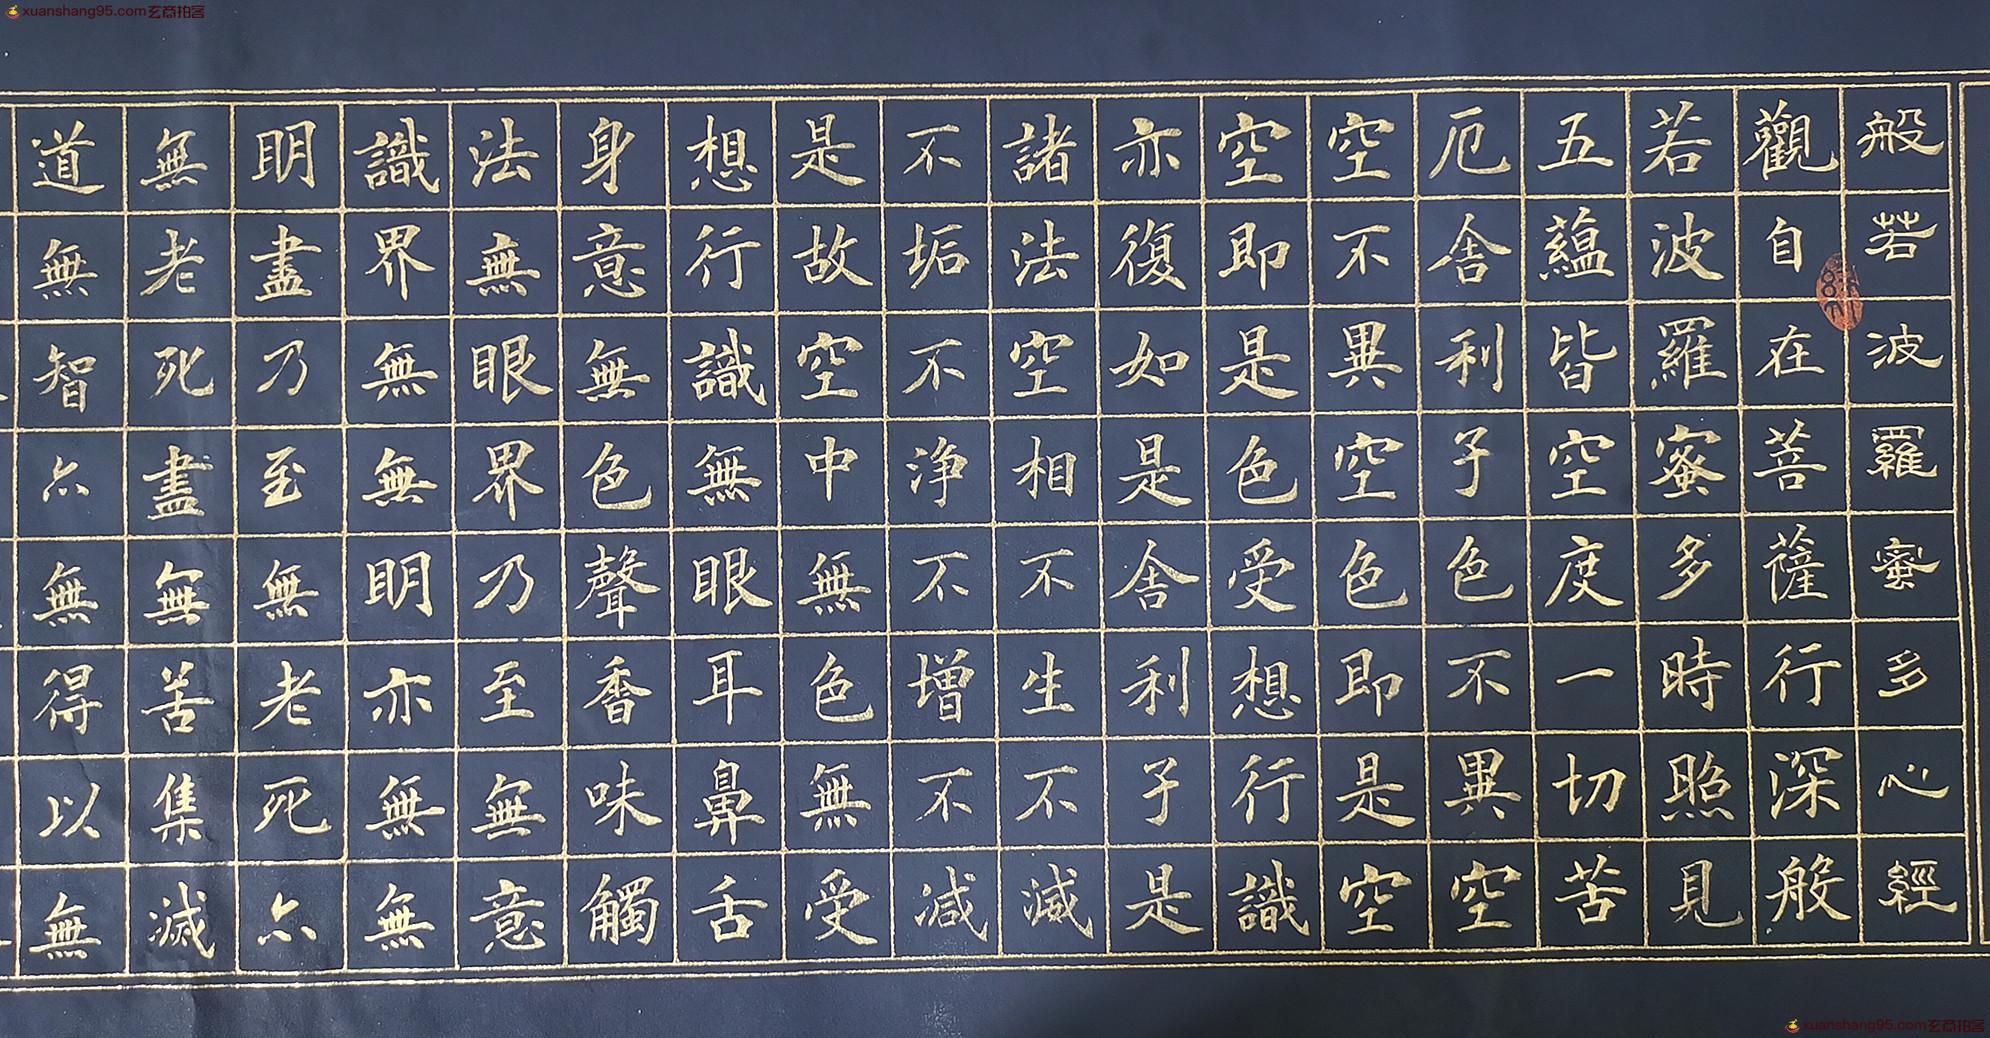 xuanshang95.com玄商拍客
般若波羅蜜多心經
觀自在菩薩行深般
若波羅蜜多時照見
五蘊皆空度一切苦
厄舍利子色不異空
空不異空色即是空
空即是色受想行識
亦復如是舍利子是
諸法空相不生不滅
不垢不净不增不減
是故空中無色無受
想行識無眼耳鼻舌
身意無色聲香味觸
法無眼界乃至無意
識界無無明亦無無
明盡乃至無老死亦
無老死盡無苦集滅
道無智亦無得以無
xuanshang95.com玄商拍客